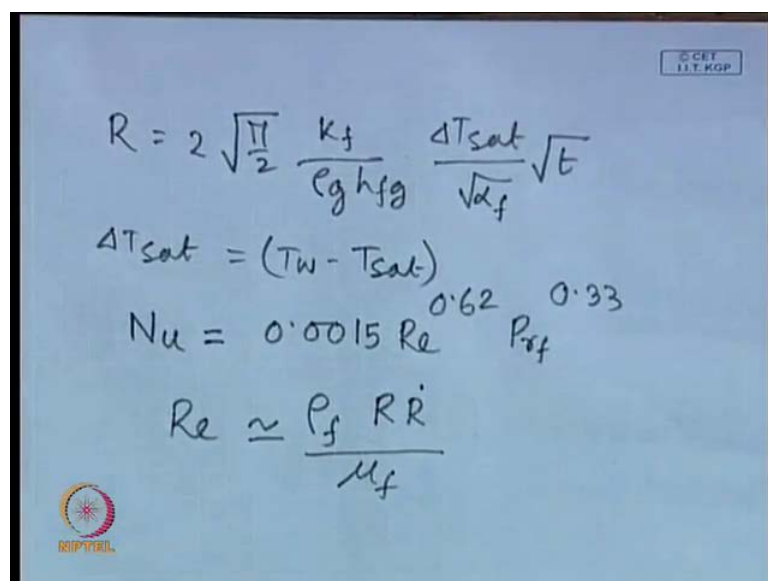 © CET
I.I.T. KGP
R = 2 √(π/2) K_f / (ρg h_fg) ΔT_sat / √α_f √t
ΔT_sat = (T_w - T_sat)
Nu = 0.0015 Re^0.62 Pr_f^0.33
Re ≃ ρ_f R Ṙ / μ_f
NPTEL